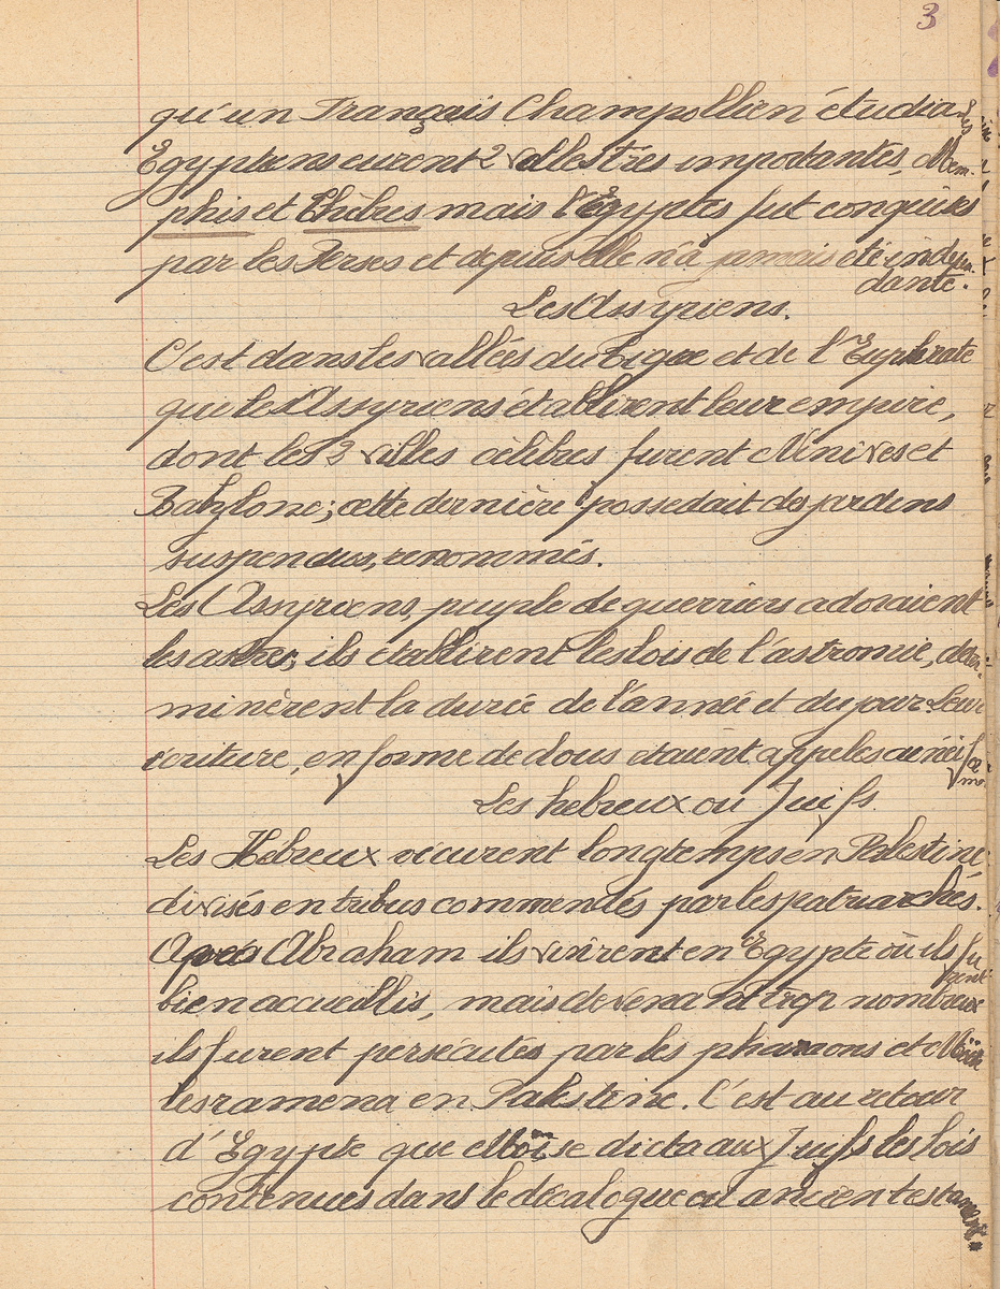 3
qu'un Français Champollion étudia. Les
Egyptiens eurent 2 villes très importantes, Mem-
phis et Thèbes mais l'Egyptes fut conquises
par les Perses et depuis elle n'a jamais été indépen-
dante.
Les Assyriens.
C'est dans les vallées du Tigre et de l'Euphrate
que les Assyriens établirent leur empire,
dont les 3 villes célèbres furent Ninives et
Babylone; cette dernière possedait des jardins
suspendus, renommés.
Les Assyriens, peuple de guerriers adoraient
les astres, ils établirent les lois de l'astromie, déter-
minèrent la durée de l'année et du jour. Leur
écriture, en forme de clous étaient appeles cunéifor
me.
Les hebreux ou Juifs.
Les Hébreux vécurent longtemps en Palestine
divisés en tribus commentés par les patriarchés.
Après Abraham ils vinrent en Egypte où ils fu
rent
bien accueillis, mais devenant trop nombreux
ils furent persécutés par les pharaons et Moïse
les ramena en Palestine. C'est au retour
d'Egypte que Moïse dicta aux Juifs les lois
contenues dans le décalogue ou ancien testament.